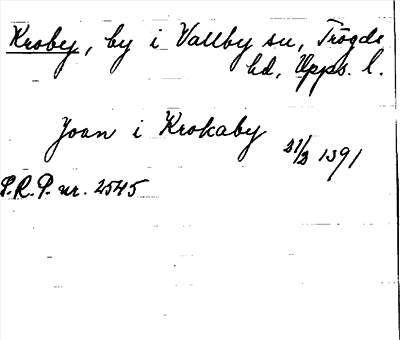 Kroby, by i Vallby sn, Trögds
hd, Upps. l.
Joan i Krokaby 21/2 1391
S.R.P. nr. 2545